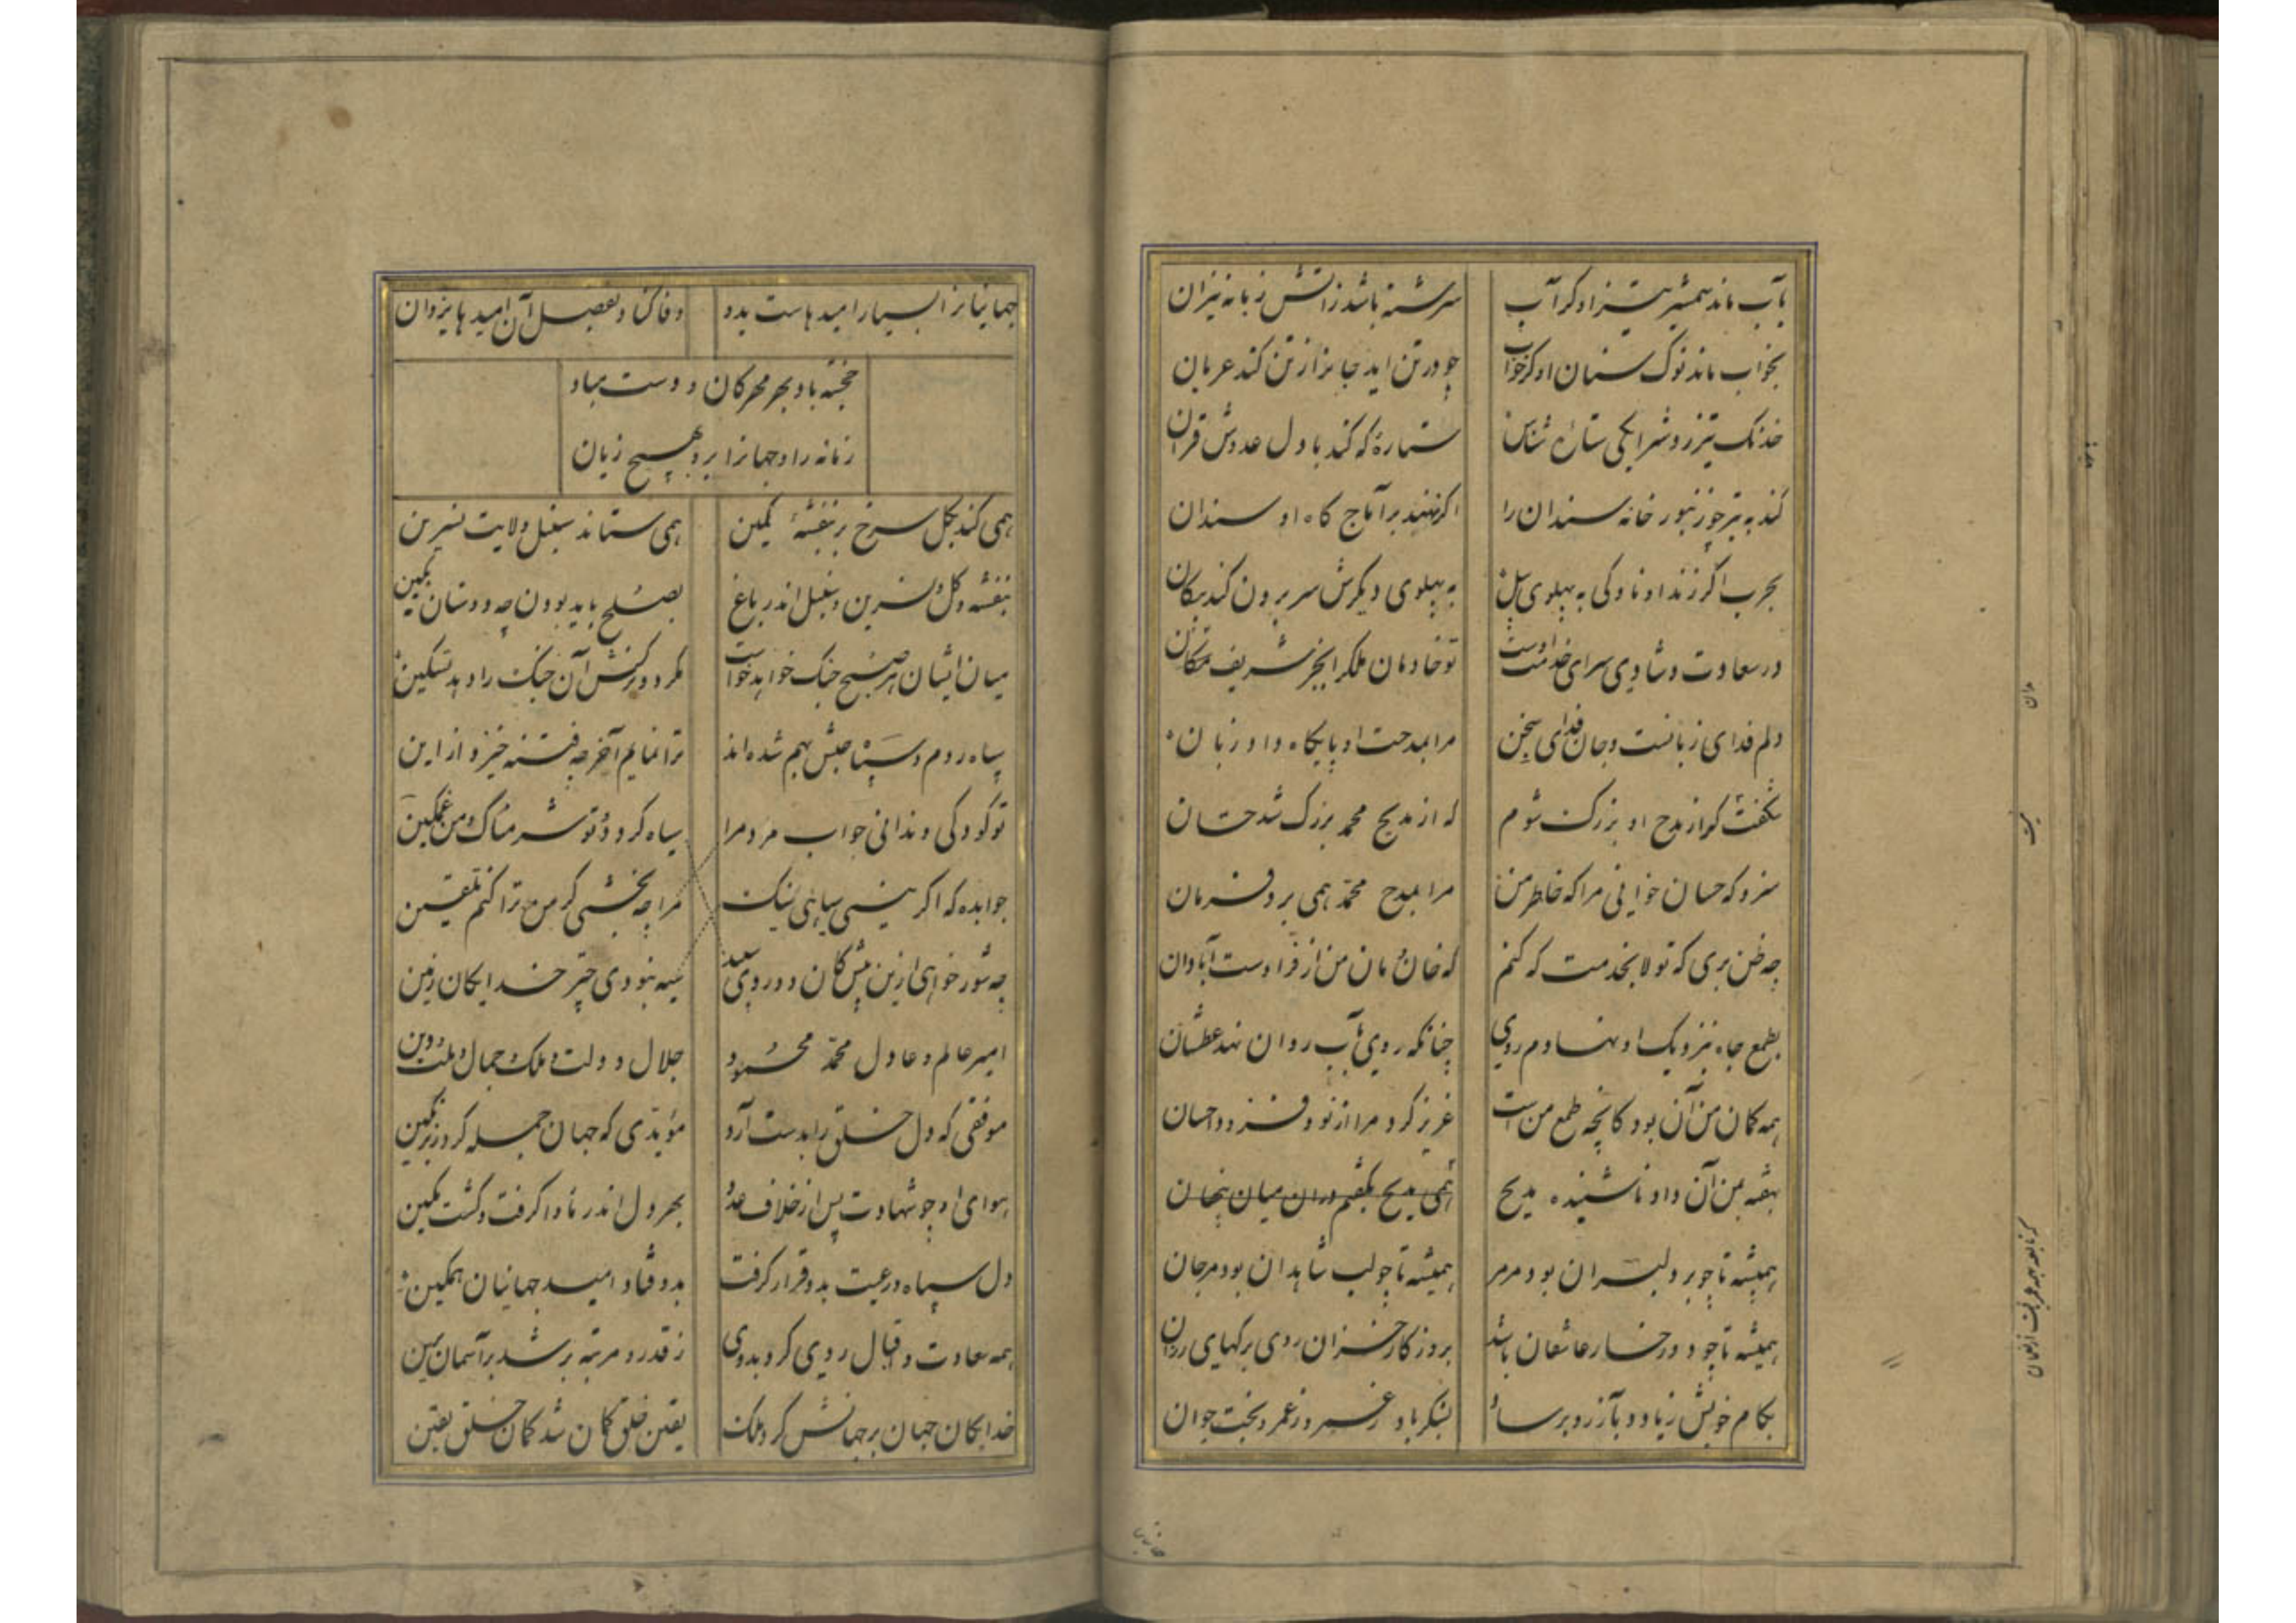 بآب ماند شمشیر تیز او کر آب سرشته باشد ز آتش زبانه نیران
بخواب ماند نوک سنان او کر خواب چو در تن اید جانرا ز تن کند عریان
خدنک تیررو شرا یکی ستاره شناس ستارهٔ که کند با دل عدوش قران
کند به تیر چو زنبور خانه سندان را اکر نهند بر آماج کاه او سندان
بحرب اکر زند او ناوکی به پهلوی پیل به پهلوی دیکرش سر برون کند پیکان
در سعادت و شادی سرای خدمت اوست تو خادمان ملکرا بجز شریف مکان
دلم فدای زبانست و جان فدای سخن مرا بمدحت او پایکاه داد زبان
شکفت کر از مدح او بزرک شوم که از مدیح محمد بزرک شد حسان
سزد که حسان خوانی مرا که خاطر من مرا بمدح محمد همی برد فرمان
چه ظن بری که تولا بخدمت که کنم که خان و مان من از فر اوست آبادان
بطمع جاه بنزدیک او نهادم روی چنانکه روی بآب روان نهد عطشان
همه کمان من آن بود کانچه طمع من است عزیز کرد مرا از نو و فزود احسان
بهقه بمن آن داد ناشنیده مدیح همی مدیح بکفتم در ان میان پنهان
همیشه تا چو بر دلبران بود مرمر همیشه تا چو لب شاهدان بود مرجان
همیشه تا چو دو رخسار عاشقان باشد بروزکار خزان روی برکهای رزان
بکام خویش زیاد و بآرزو برساد بشکر باد ز عمر دراز و بخت جوان
جهانیانرا بسیار امیدهاست بدو وفا کناد بفضل آن امیدها یزدان
خجسته باد بر مهرکان و دست مباد
زمانه را و جهانرا برو هیچ زیان
همی کند بکل سرخ بر بنفشه کمین همی ستاند سنبل ولایت نسرین
بنفشه و کل و نسرین و سنبل اندر باغ بصلح باید بودن چه دوستان بکمین
میان ایشان هر صبح جنک خواهد خواست مکر دو رکنش آن جنک را دهد تسکین
سپاه روم و سپاه حبش بهم شده اند ترا نمایم آخر چه فتنه خیزد از این
تو کودکی و ندانی جواب مرد مرا سیاه کردد و تو شرمناک و من غمکین
جوابده که اکر نیستی سپاهی نیک مرا چه بخشی کر من ترا کنم تلقین
چه شور خواهی ازین پیش کان دو روی سپید سیه نبودی جز خدایکان زمین
امیر عالم و عادل محمد محمود جلال دولت و ملک و جمال ملت و دین
موفقی که دل خلق را بدست آرد مؤیدی که جهان جمله کرد زیر نکین
هوای او چو شهادت پس از خلاف عدو بهر دل اندر ماوا کرفت و کشت مکین
دل سپاه و رعیت بدو قرار کرفت بدو فتاد امید جهانیان همکین
همه سعادت و اقبال روی کرد بدوی ز قدر و مرتبه بر شد بر آسمان برین
خدایکان جهان بر جهانش کرد ملک یقین خلق کمان شد کمان خلق یقین